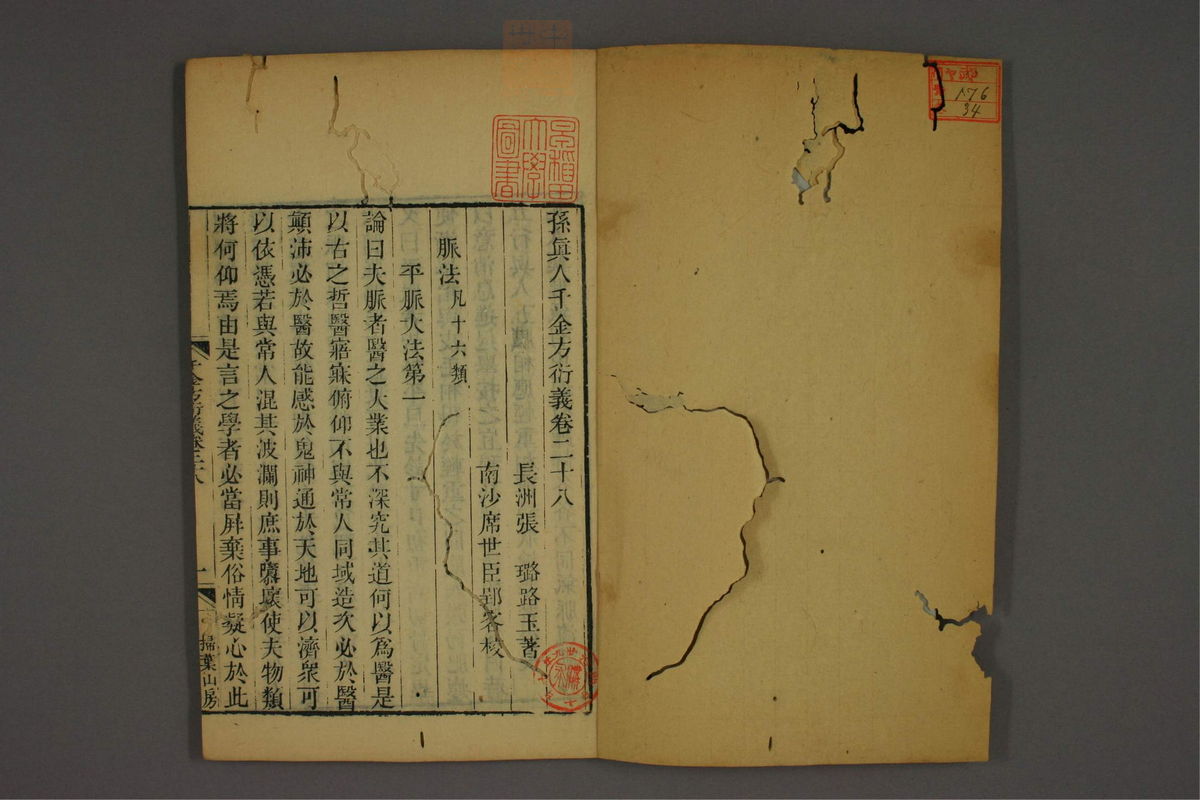 孫眞人千金方衍義卷二十八
長洲張 璐路玉著
南沙席世臣郢客校
脈法凡十六類
平脈大法第一
論曰夫脈者醫之大業也不深究其道何以爲醫是
以古之哲醫寤寐俯仰不與常人同域造次必於醫
顚沛必於醫故能感於鬼神通於天地可以濟衆可
以依憑若與常人混其波瀾則庶事隳壞使夫物類
將何仰焉由是言之學者必當屛棄俗情凝心於此
千金方衍義卷二十八
一
掃葉山房
早稻田大學圖書
176
34